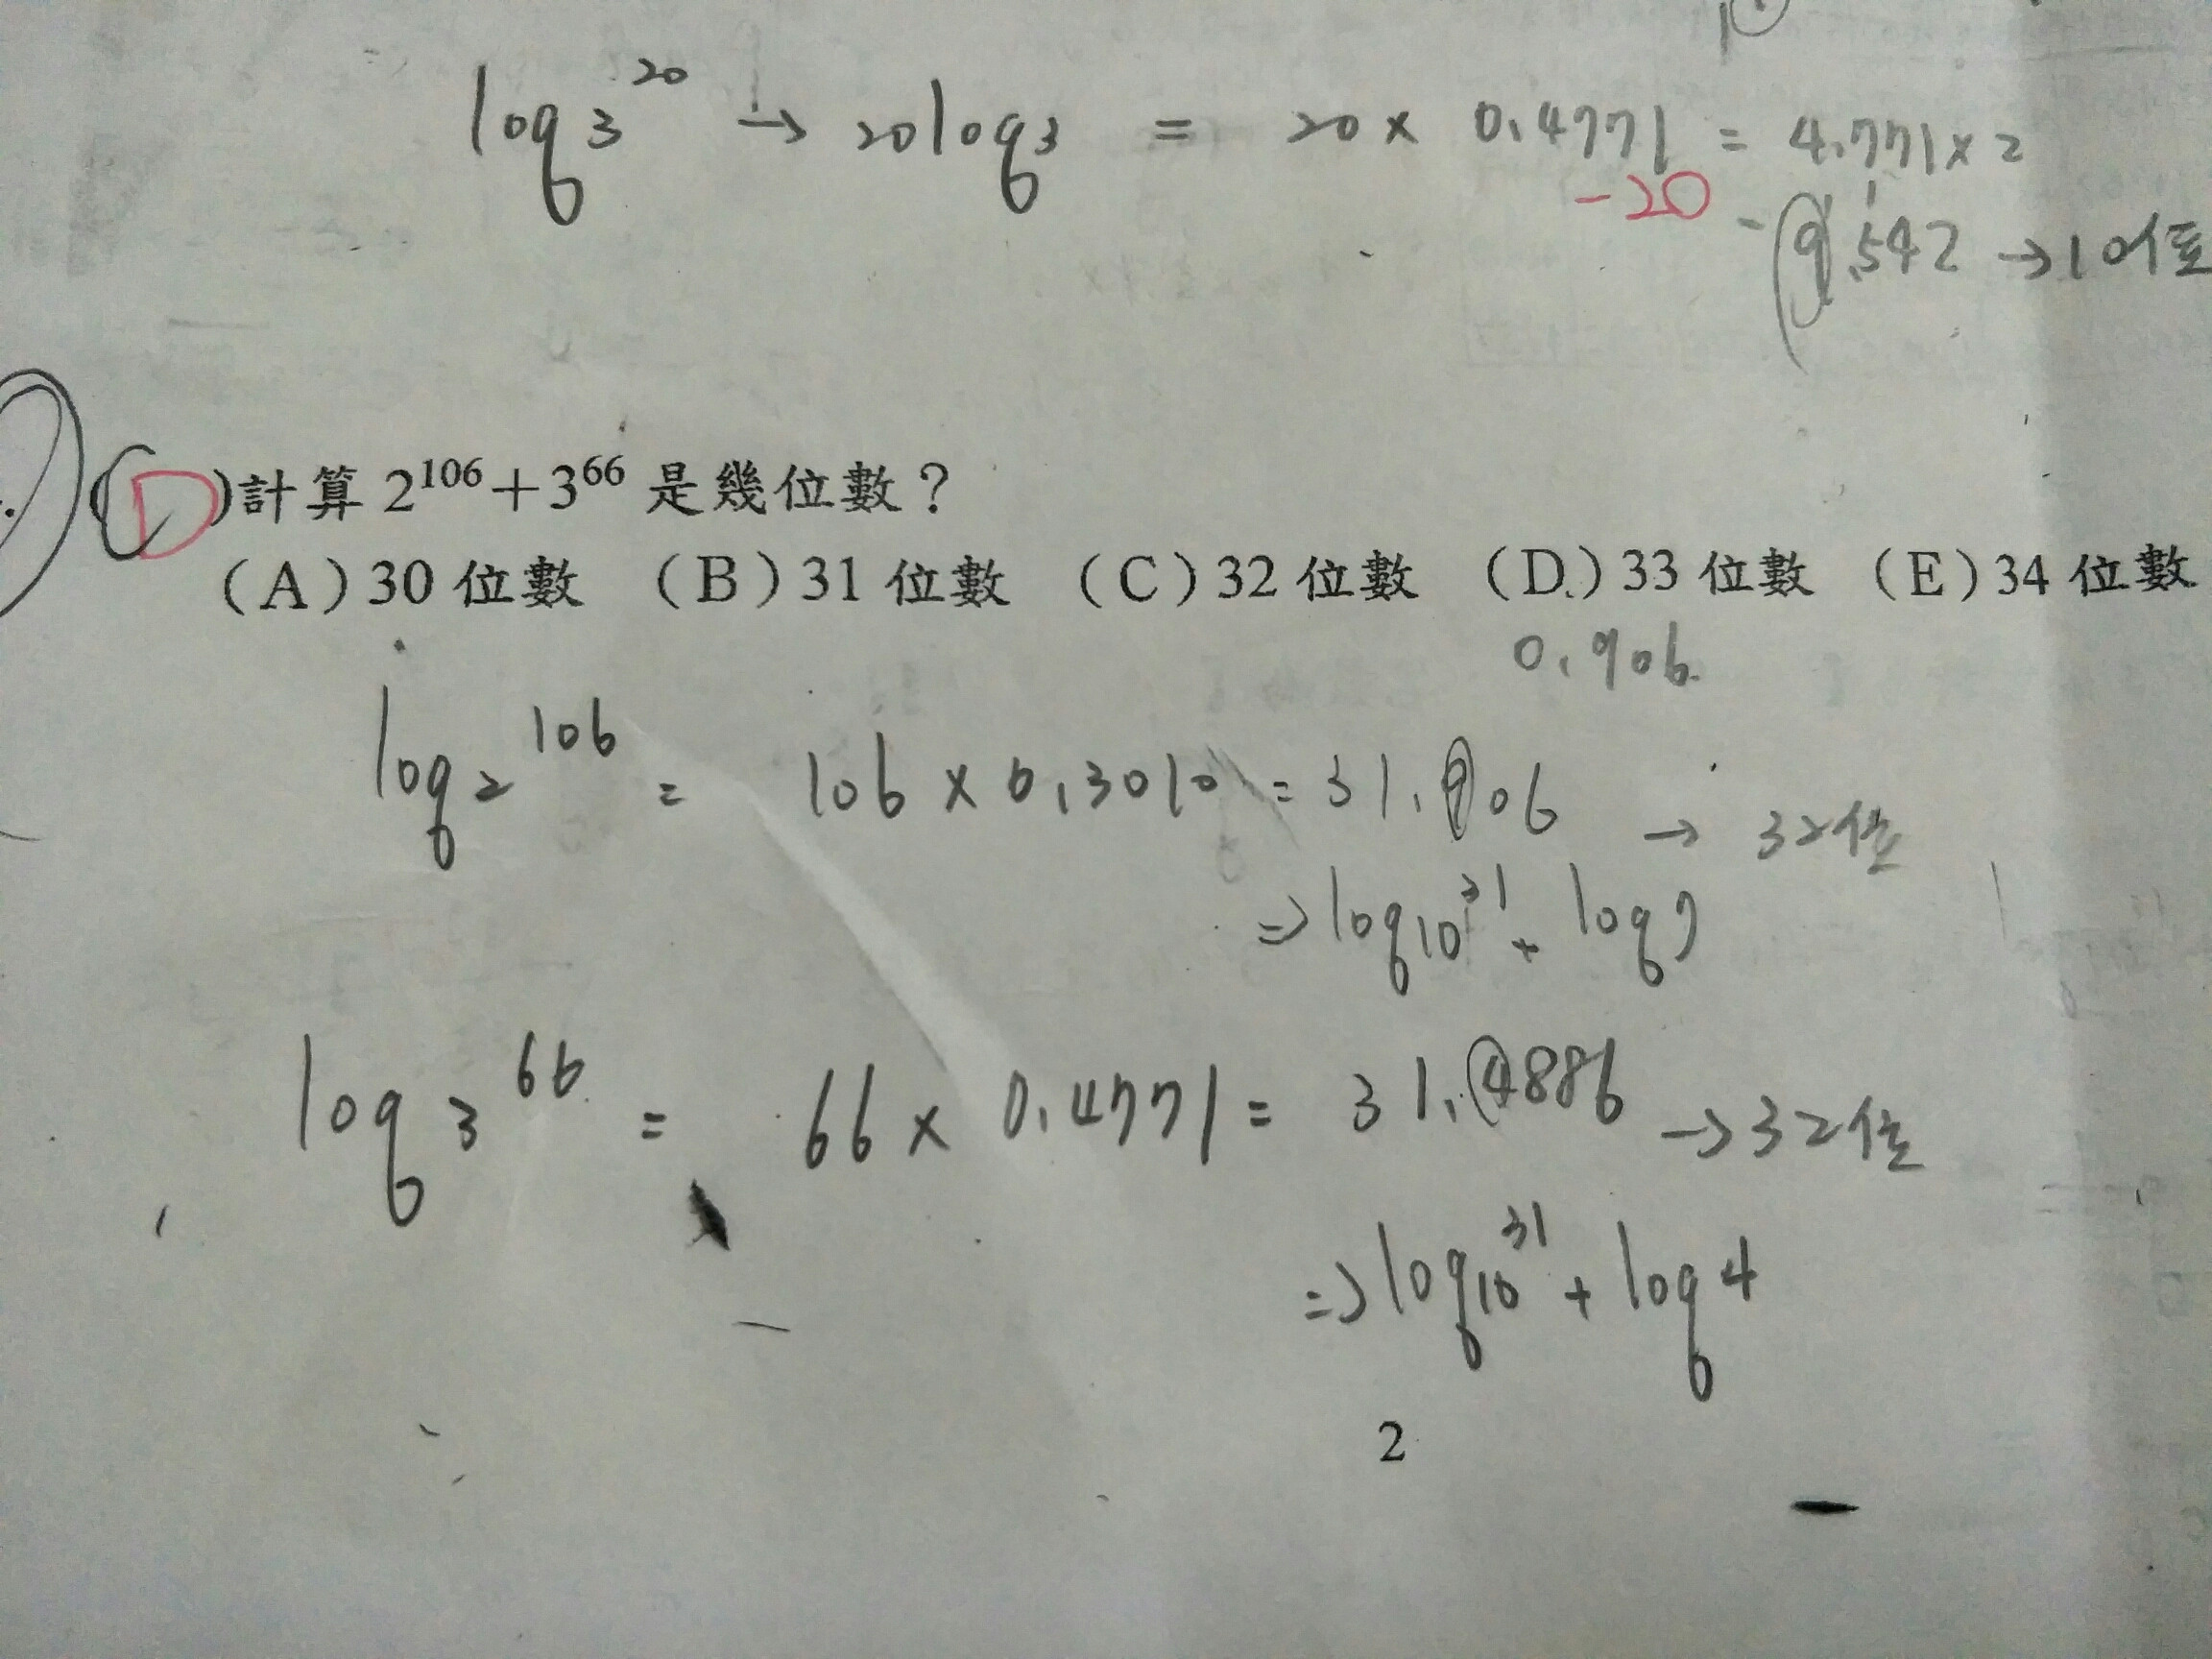 log 3^20 → 20 log 3 = 20 × 0.4771 = 4.771 × 2
-20
= 9.542 → 10位
(D)計算 2^106 + 3^66 是幾位數？
(A) 30 位數 (B) 31 位數 (C) 32 位數 (D) 33 位數 (E) 34 位數
0.906
log 2^106 = 106 × 0.3010 = 31.906 → 32位
⇒ log 10^31 + log 7
log 3^66 = 66 × 0.4771 = 31.4886 → 32位
⇒ log 10^31 + log 4
2